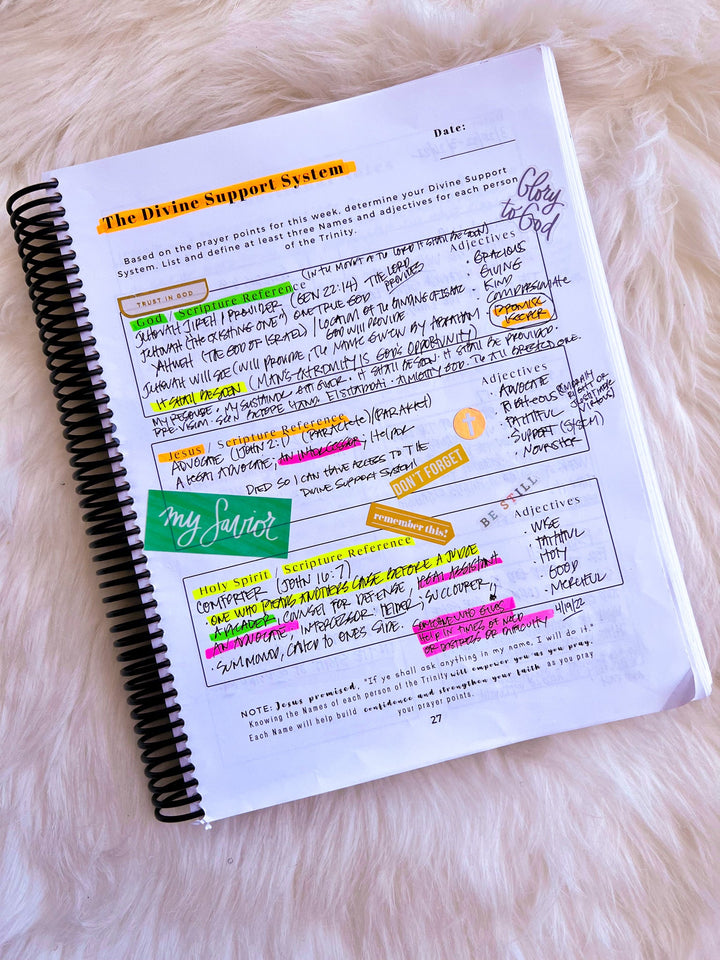 Date:
The Divine Support System
Based on the prayer points for this week, determine your Divine Support
System. List and define at least three Names and adjectives for each person
of the Trinity.
Glory
to God
TRUST IN GOD
(IN THE MOUNT OF THE LORD IT SHALL BE SEEN)
God / Scripture Reference
JEHOVAH JIREH / PROVIDER (GEN 22:14) THE LORD
PROVIDES
JEHOVAH (THE EXISTING ONE") ONE TRUE GOD
YAHWEH (THE GOD OF ISRAEL) / LOCATION OF THE BINDING OF ISAAC
GOD WILL PROVIDE
JEHOVAH WILL SEE (WILL PROVIDE, THE NAME GIVEN BY ABRAHAM)
IT SHALL BE SEEN (MAN'S EXTREMITY IS GOD'S OPPORTUNITY)
MY RESPONSE. MY SUSTAINER. IT SHALL BE SEEN. IT SHALL BE PROVIDED.
PREVISION. SEEN BEFORE HAND. EL SHADDAI. ALMIGHTY GOD. THE ALL BREASTED ONE.
Adjectives
· GRACIOUS
· GIVING
· KIND
· COMPASSIONATE
· PROMISE
KEEPER
Jesus / Scripture Reference
ADVOCATE (1 JOHN 2:1) (PARACLETE)/(PARAKLET)
A LEGAL ADVOCATE, AN INTERCESSOR, HELPER
DIED SO I CAN HAVE ACCESS TO THE
DIVINE SUPPORT SYSTEM
Adjectives
· ADVOCATE
· RIGHTEOUS (MORALLY
RIGHT OR
JUSTIFIABLE
VIRTUOUS)
· FAITHFUL
· SUPPORT (SYSTEM)
· NOURISHER
DON'T FORGET
my Savior
remember this!
BE STILL
Holy Spirit / Scripture Reference
COMFORTER (JOHN 16:7)
· ONE WHO PLEADS ANOTHERS CAUSE BEFORE A JUDGE
A PLEADER, COUNSEL FOR DEFENSE, LEGAL ASSISTANT
AN ADVOCATE, INTERCESSOR. HELPER; SUCCOURER,
· SUMMONED, CALLED TO ONES SIDE.
SOMEONE WHO GIVES
HELP IN TIMES OF NEED
OR DISTRESS OR DIFFICULTY
Adjectives
· WISE
· FAITHFUL
· HOLY
· GOOD
· MERCIFUL
4/19/22
NOTE: Jesus promised, "If ye shall ask anything in my name, I will do it."
Knowing the Names of each person of the Trinity will empower you as you pray.
Each Name will help build confidence and strengthen your faith as you pray
your prayer points.
27